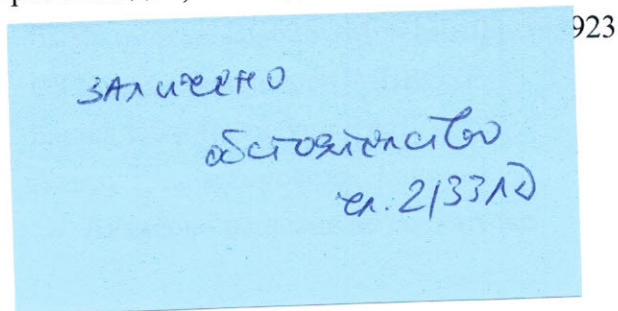 923
заличено
обстоятелство
чл. 2/ЗЗЛД